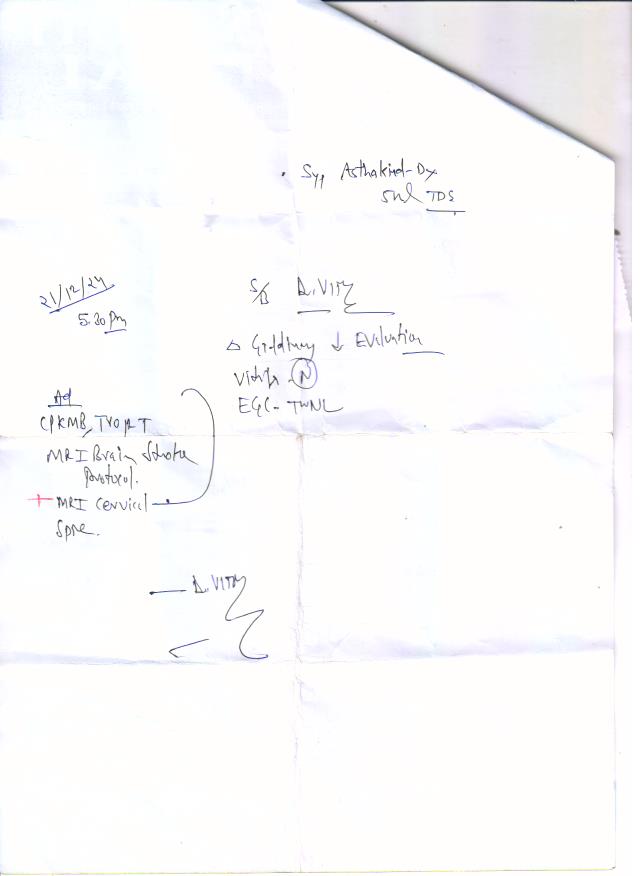 . Syp Asthakind-Dx
5ml TDS
21/12/24
5.30pm
S/B Dr. Vitty
△ Giddiness ↓ Evaluation
Vitals - N
ECG - TWNL
Ad
CPKMB, TROP T
MRI Brain Stroke
Protocol.
+ MRI Cervical
Spine.
— Dr. Vitty